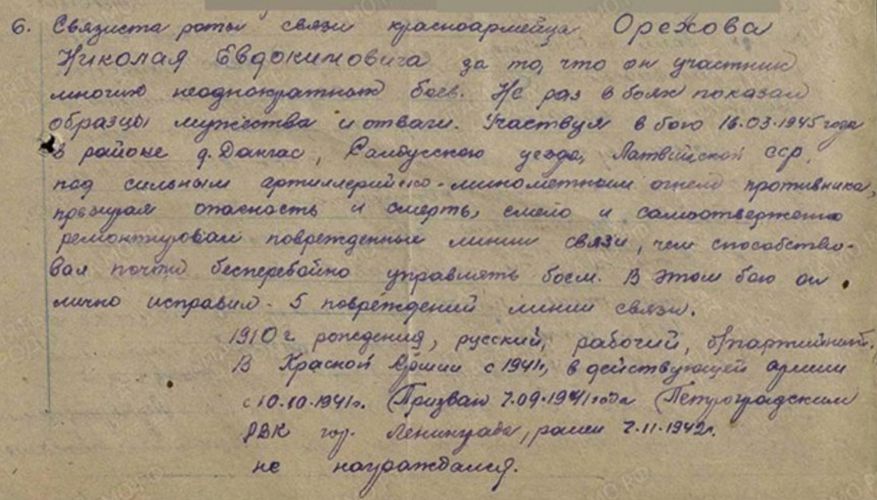 6. Связиста роты связи красноармейца Орехова
Николая Евдокимовича за то, что он участник
многих неоднократных боев. Не раз в боях показал
образцы мужества и отваги. Участвуя в бою 16.03.1945 года
в районе д. Дангас, Салдусского уезда, Латвийской ССР,
под сильным артиллерийско-минометным огнем противника,
презирая опасность и смерть, смело и самоотверженно
ремонтировал поврежденные линии связи, чем способство-
вал почти бесперебойно управлять боем. В этом бою он
лично исправил - 5 повреждений линии связи.
1910 г. рождения, русский, рабочий, б/партийный.
В Красной Армии с 1941г, в действующей армии
с 10.10.1941г. Призван 7.09.1941 года Петроградским
РВК гор. Ленинграда, ранен 7.11.1942г.
не награждался.